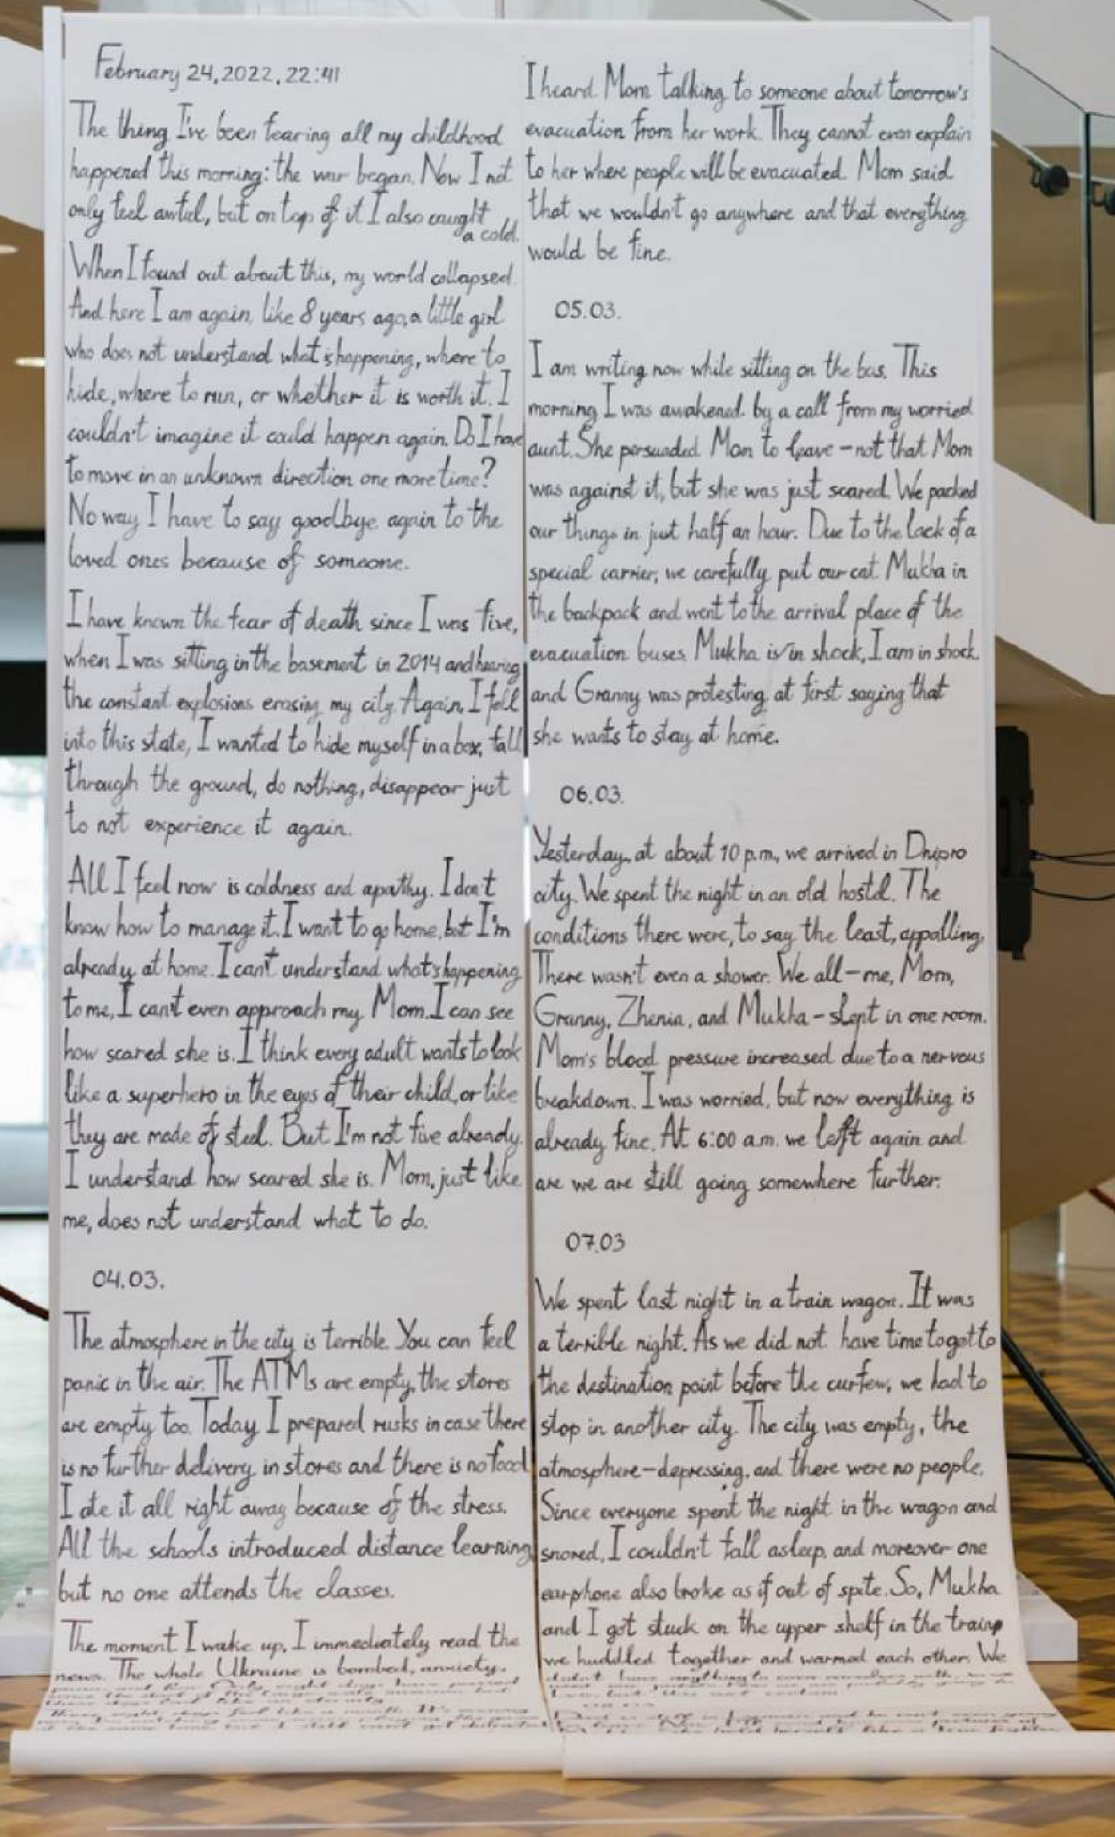 February 24, 2022, 22:41
The thing I've been fearing all my childhood
happened this morning: the war began. Now I not
only feel awful, but on top of it I also caught
a cold.
When I found out about this, my world collapsed.
And here I am again, like 8 years ago, a little girl
who does not understand what is happening, where to
hide, where to run, or whether it is worth it. I
couldn't imagine it could happen again. Do I have
to move in an unknown direction one more time?
No way I have to say goodbye again to the
loved ones because of someone.
I have known the fear of death since I was five,
when I was sitting in the basement in 2014 and hearing
the constant explosions erasing my city. Again, I fell
into this state, I wanted to hide myself in a box, fall
through the ground, do nothing, disappear just
to not experience it again.
All I feel now is coldness and apathy. I don't
know how to manage it. I want to go home, but I'm
already at home. I can't understand what's happening
to me, I can't even approach my Mom. I can see
how scared she is. I think every adult wants to look
like a superhero in the eyes of their child, or like
they are made of steel. But I'm not five already.
I understand how scared she is. Mom, just like
me, does not understand what to do.
04.03.
The atmosphere in the city is terrible. You can feel
panic in the air. The ATMs are empty, the stores
are empty too. Today I prepared rusks in case there
is no further delivery in stores and there is no food
I ate it all right away because of the stress.
All the schools introduced distance learning
but no one attends the classes.
The moment I wake up, I immediately read the
news. The whole Ukraine is bombed, anxiety,
I heard Mom talking to someone about tomorrow's
evacuation from her work. They cannot even explain
to her where people will be evacuated. Mom said
that we wouldn't go anywhere and that everything
would be fine.
05.03.
I am writing now while sitting on the bus. This
morning I was awakened by a call from my worried
aunt. She persuaded Mom to leave – not that Mom
was against it, but she was just scared. We packed
our things in just half an hour. Due to the lack of a
special carrier, we carefully put our cat Mukha in
the backpack and went to the arrival place of the
evacuation buses. Mukha is in shock, I am in shock,
and Granny was protesting at first saying that
she wants to stay at home.
06.03.
Yesterday, at about 10 p.m., we arrived in Dnipro
city. We spent the night in an old hostel. The
conditions there were, to say the least, appalling.
There wasn't even a shower. We all – me, Mom,
Granny, Zhenia, and Mukha – slept in one room.
Mom's blood pressure increased due to a nervous
breakdown. I was worried, but now everything is
already fine. At 6:00 a.m. we left again and
are we are still going somewhere further.
07.03
We spent last night in a train wagon. It was
a terrible night. As we did not have time to get to
the destination point before the curfew, we had to
stop in another city. The city was empty, the
atmosphere – depressing, and there were no people.
Since everyone spent the night in the wagon and
snored, I couldn't fall asleep, and moreover one
earphone also broke as if out of spite. So, Mukha
and I got stuck on the upper shelf in the train,
we huddled together and warmed each other. We